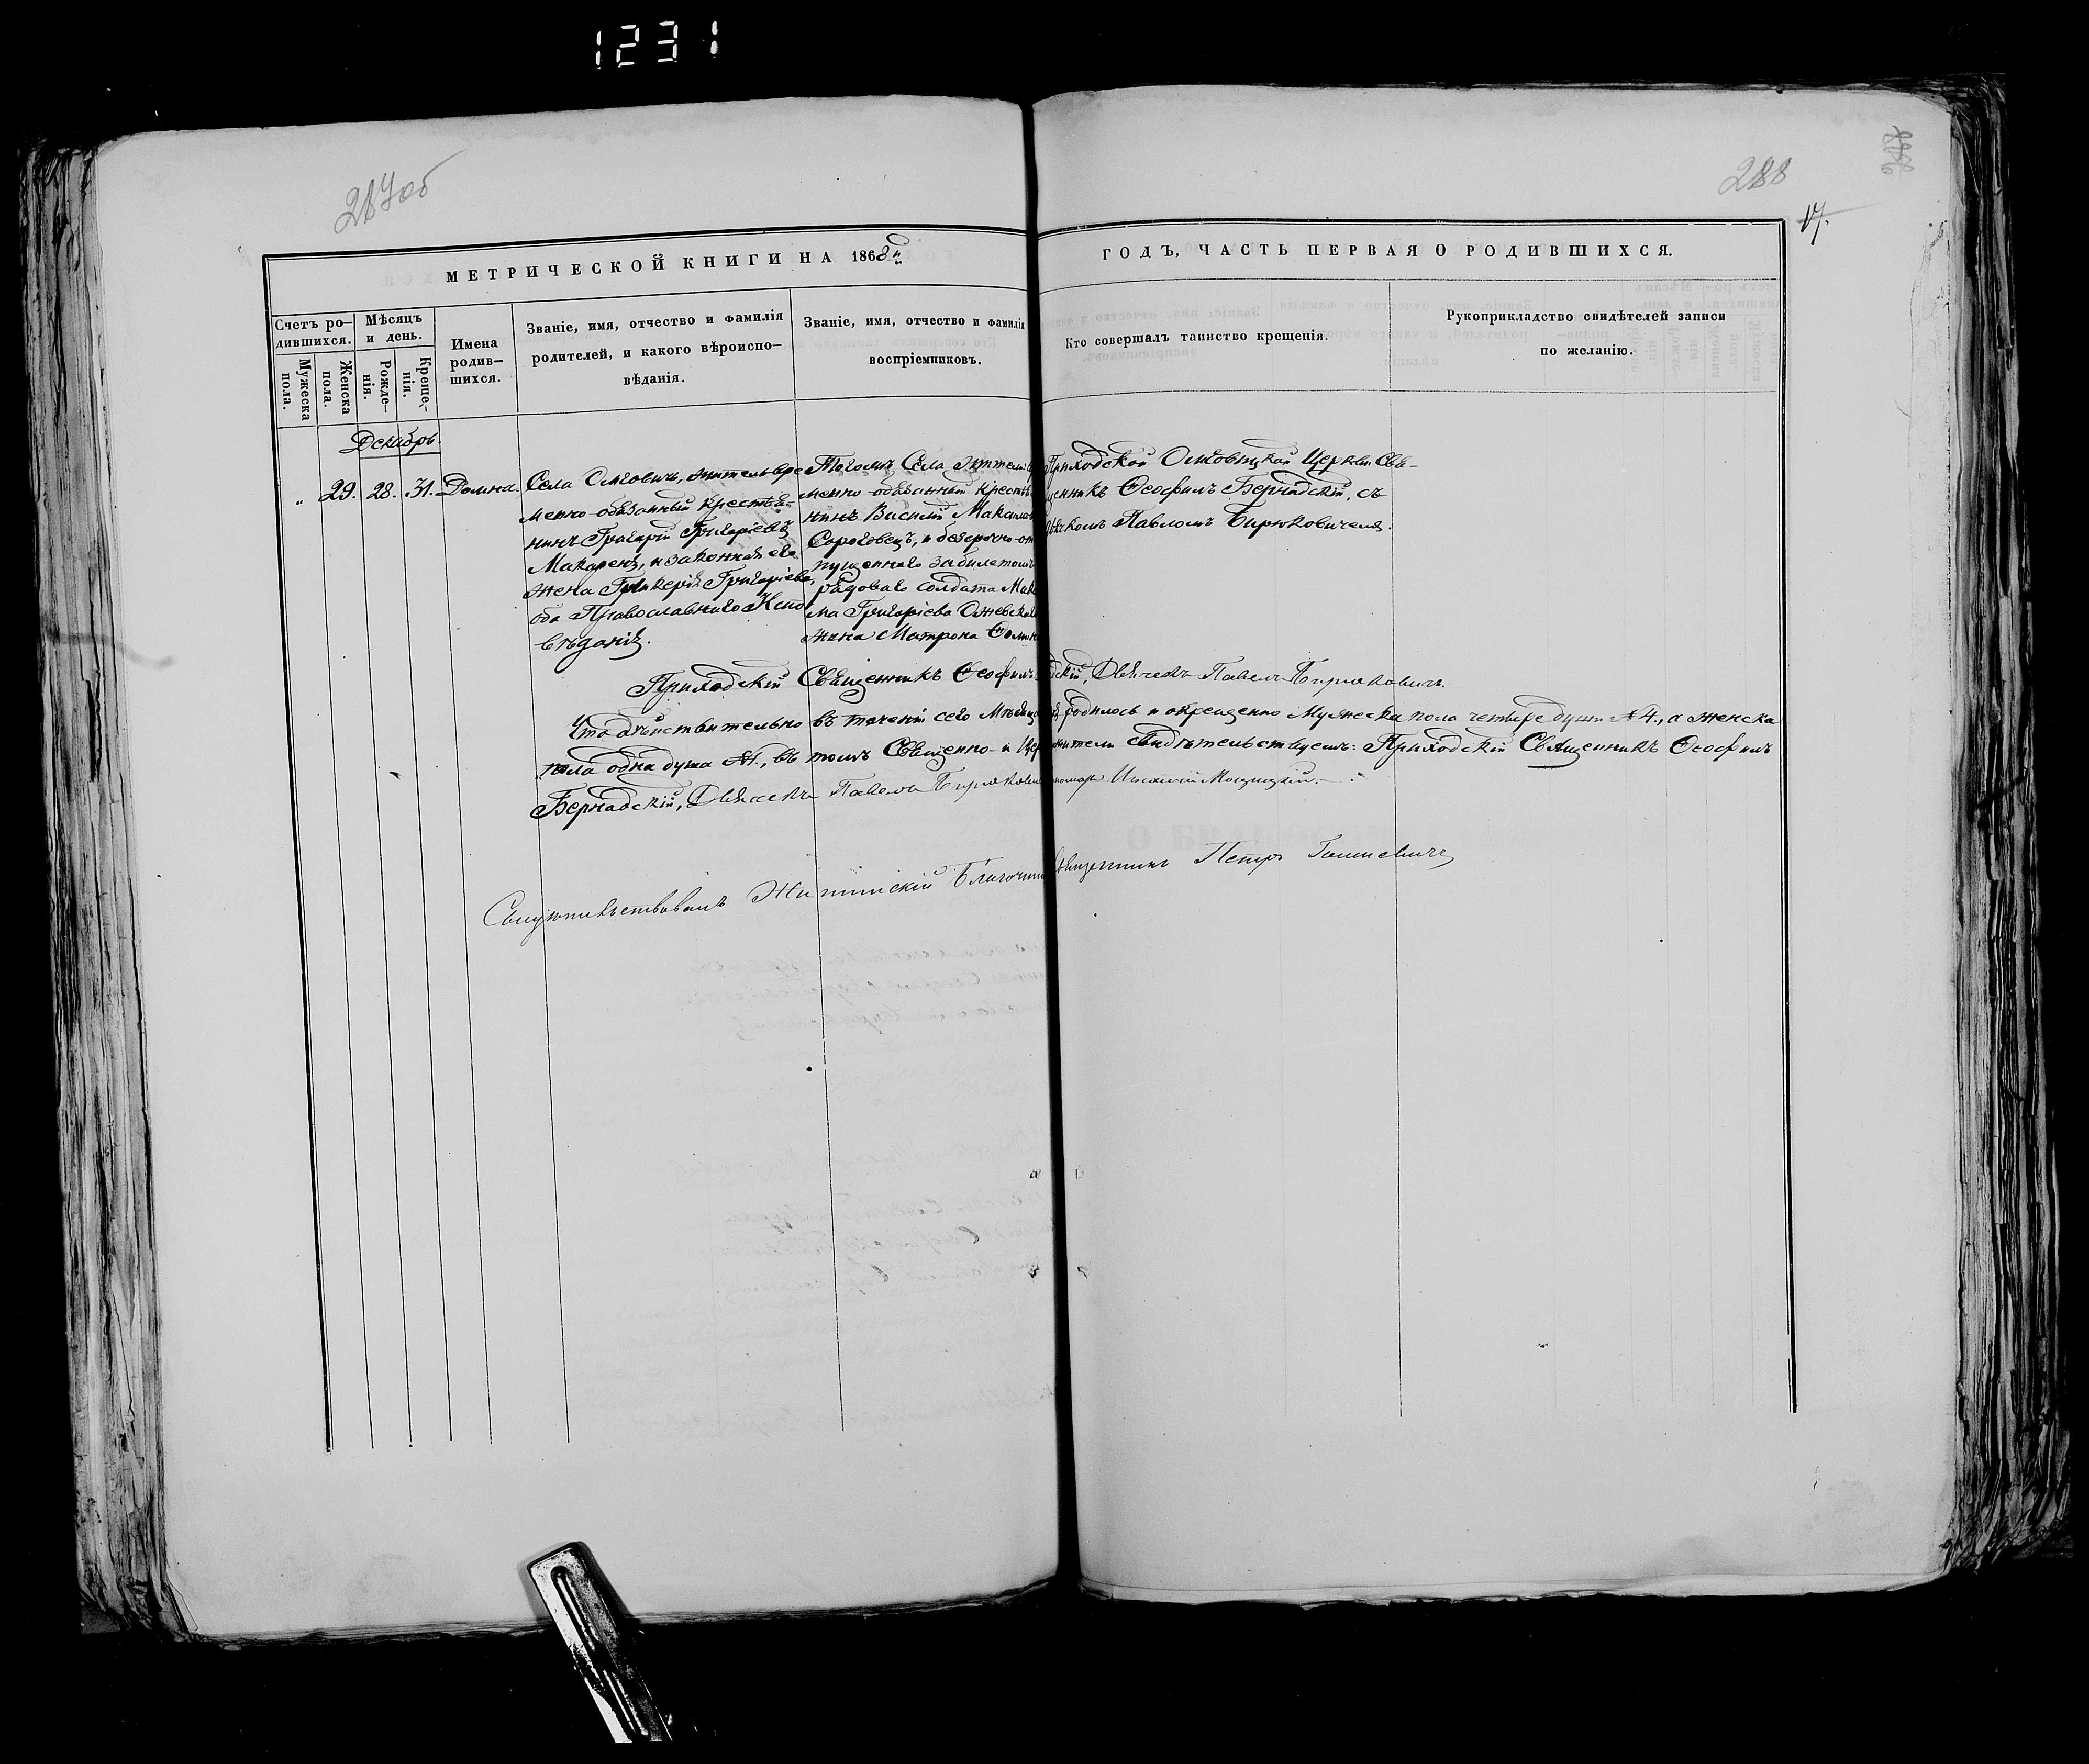 1231
287об
288
17.
МЕТРИЧЕСКОЙ КНИГИ НА 1868й
ГОДЪ, ЧАСТЬ ПЕРВАЯ О РОДИВШИХСЯ.
Счетъ ро-
дившихся.
Мужеска
пола.
Женска
пола.
Мѣсяцъ
и день.
Рожде-
нія.
Креще-
нія.
Имена
родив-
шихся.
Званіе, имя, отчество и фамилія
родителей, и какого вѣроиспо-
вѣданія.
Званіе, имя, отчество и фамилія
воспріемниковъ.
Кто совершалъ таинство крещенія.
Рукоприкладство свидѣтелей записи
по желанію.
Декабрь.
„ 29. 28. 31. Домна.
Села жительвре
менно-обязанный крестья-
нинъ Григорій Григоріевъ
Макарецъ, и законная его
жена Гликерія Григоріева,
оба Православнаго Испо
вѣданія.
Тогожъ Села
менно-обязанный кресть
нинъ Василій
и безсрочно-от
пущеннаго за билетомъ
рядоваго солдата
ма Григоріева
жена Матрона
Приходской Церкви Свя-
щенникъ Ѳеофилъ Бернадскій, съ
Дьячкомъ Павломъ Бирюковичемъ.
Приходскій Священникъ Ѳеофилъ дскій, Дьячекъ Павелъ Бирюковичъ.
Что дѣйствительно въ теченіи сего Мѣсяца родилось и окрещенно Мужеска пола четыре души №4., а женска
пола одна душа №1., въ томъ Священно- и Цер жители свидѣтельствуемъ: Приходскій Священникъ Ѳеофилъ
Бернадскій, Дьячекъ Павелъ Бирюкович номарь
Благочинн Священникъ Петръ